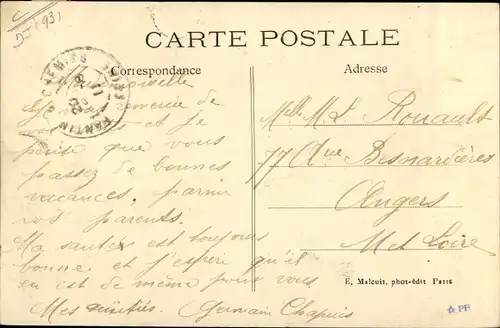 DJ 931
CARTE POSTALE
Correspondance
Adresse
PANTIN
de
et je
pense que vous
passez de bonnes
vacances. parmi
vos parents.
Ma santée est toujours
bonne et j'esperè qu'il
en est de même pour vous
Mes amitiés. Germain Chapuis
Melle M. L. Rouault
77 Aue Besnardières
Angers
M et Loire
E. Malcuit. phot-édit Paris
☆ PB